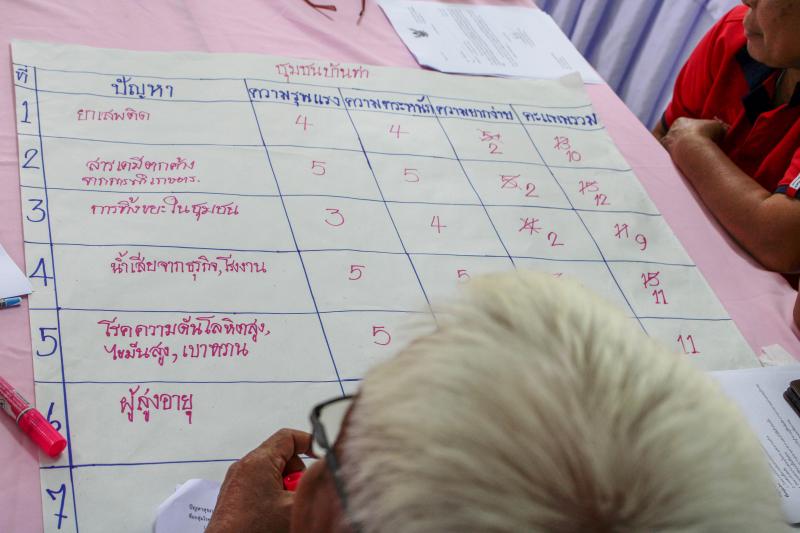 ชุมชนบ้านท่า
ที่ ปัญหา ความรุนแรง ความตระหนัก ความยากง่าย คะแนนรวม
1 ยาเสพติด 4 4 5 2 13 10
2 สารเคมีตกค้าง 5 5 5 2 15 12
จากการทำเกษตร.
3 การทิ้งขยะในชุมชน 3 4 4 2 11 9
4 น้ำเสียจากธุรกิจ,โรงงาน 5 5 15 11
5 โรคความดันโลหิตสูง, 5 11
ไขมันสูง, เบาหวาน
6 ผู้สูงอายุ
7